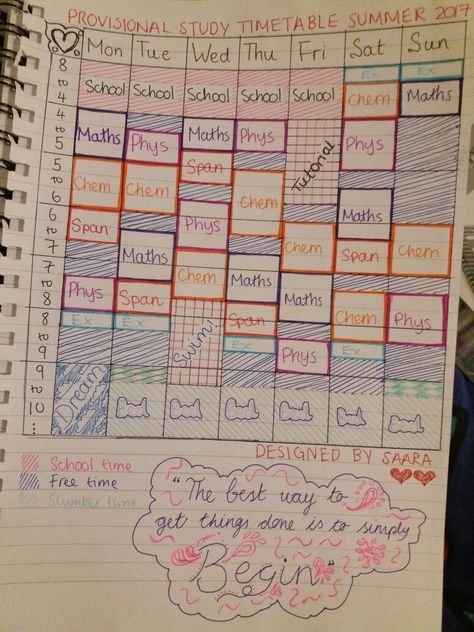 PROVISIONAL STUDY TIMETABLE SUMMER 2017
Mon Tue Wed Thu Fri Sat Sun
8 Ex Ex
to School School School School School Chem Maths
4
4 Maths Phys Maths Phys Tutorial Phys
to
5
5 Chem Chem Span Chem
to Phys Maths
6
Span Maths Chem Span Chem
to
7
7 Chem Maths Maths
to
8 Phys Span Span Chem Phys
8 Ex Ex Swim! Ex Phys Ex
9
9 Dream
to
10
...
DESIGNED BY SAARA
School time
Free time
Slumber time
"The best way to
get things done is to simply
Begin"